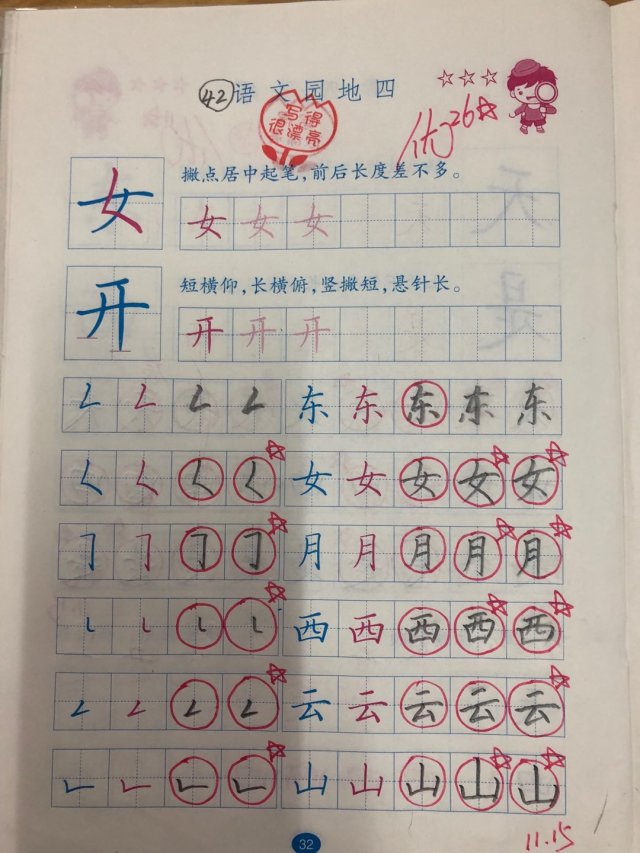 42 语文园地四
写得
很漂亮
优 26
女 撇点居中起笔，前后长度差不多。
女 女 女
开 短横仰，长横俯，竖撇短，悬针长。
开 开 开
𠃋 𠃋 𠃋 𠃋 东 东 东 东 东
𡿨 𡿨 𡿨 𡿨 女 女 女 女 女
𠃌 𠃌 𠃌 𠃌 月 月 月 月 月
㇄ ㇄ ㇄ ㇄ 西 西 西 西 西
𠃋 𠃋 𠃋 𠃋 云 云 云 云 云
𠃊 𠃊 𠃊 𠃊 山 山 山 山 山
32
11.15